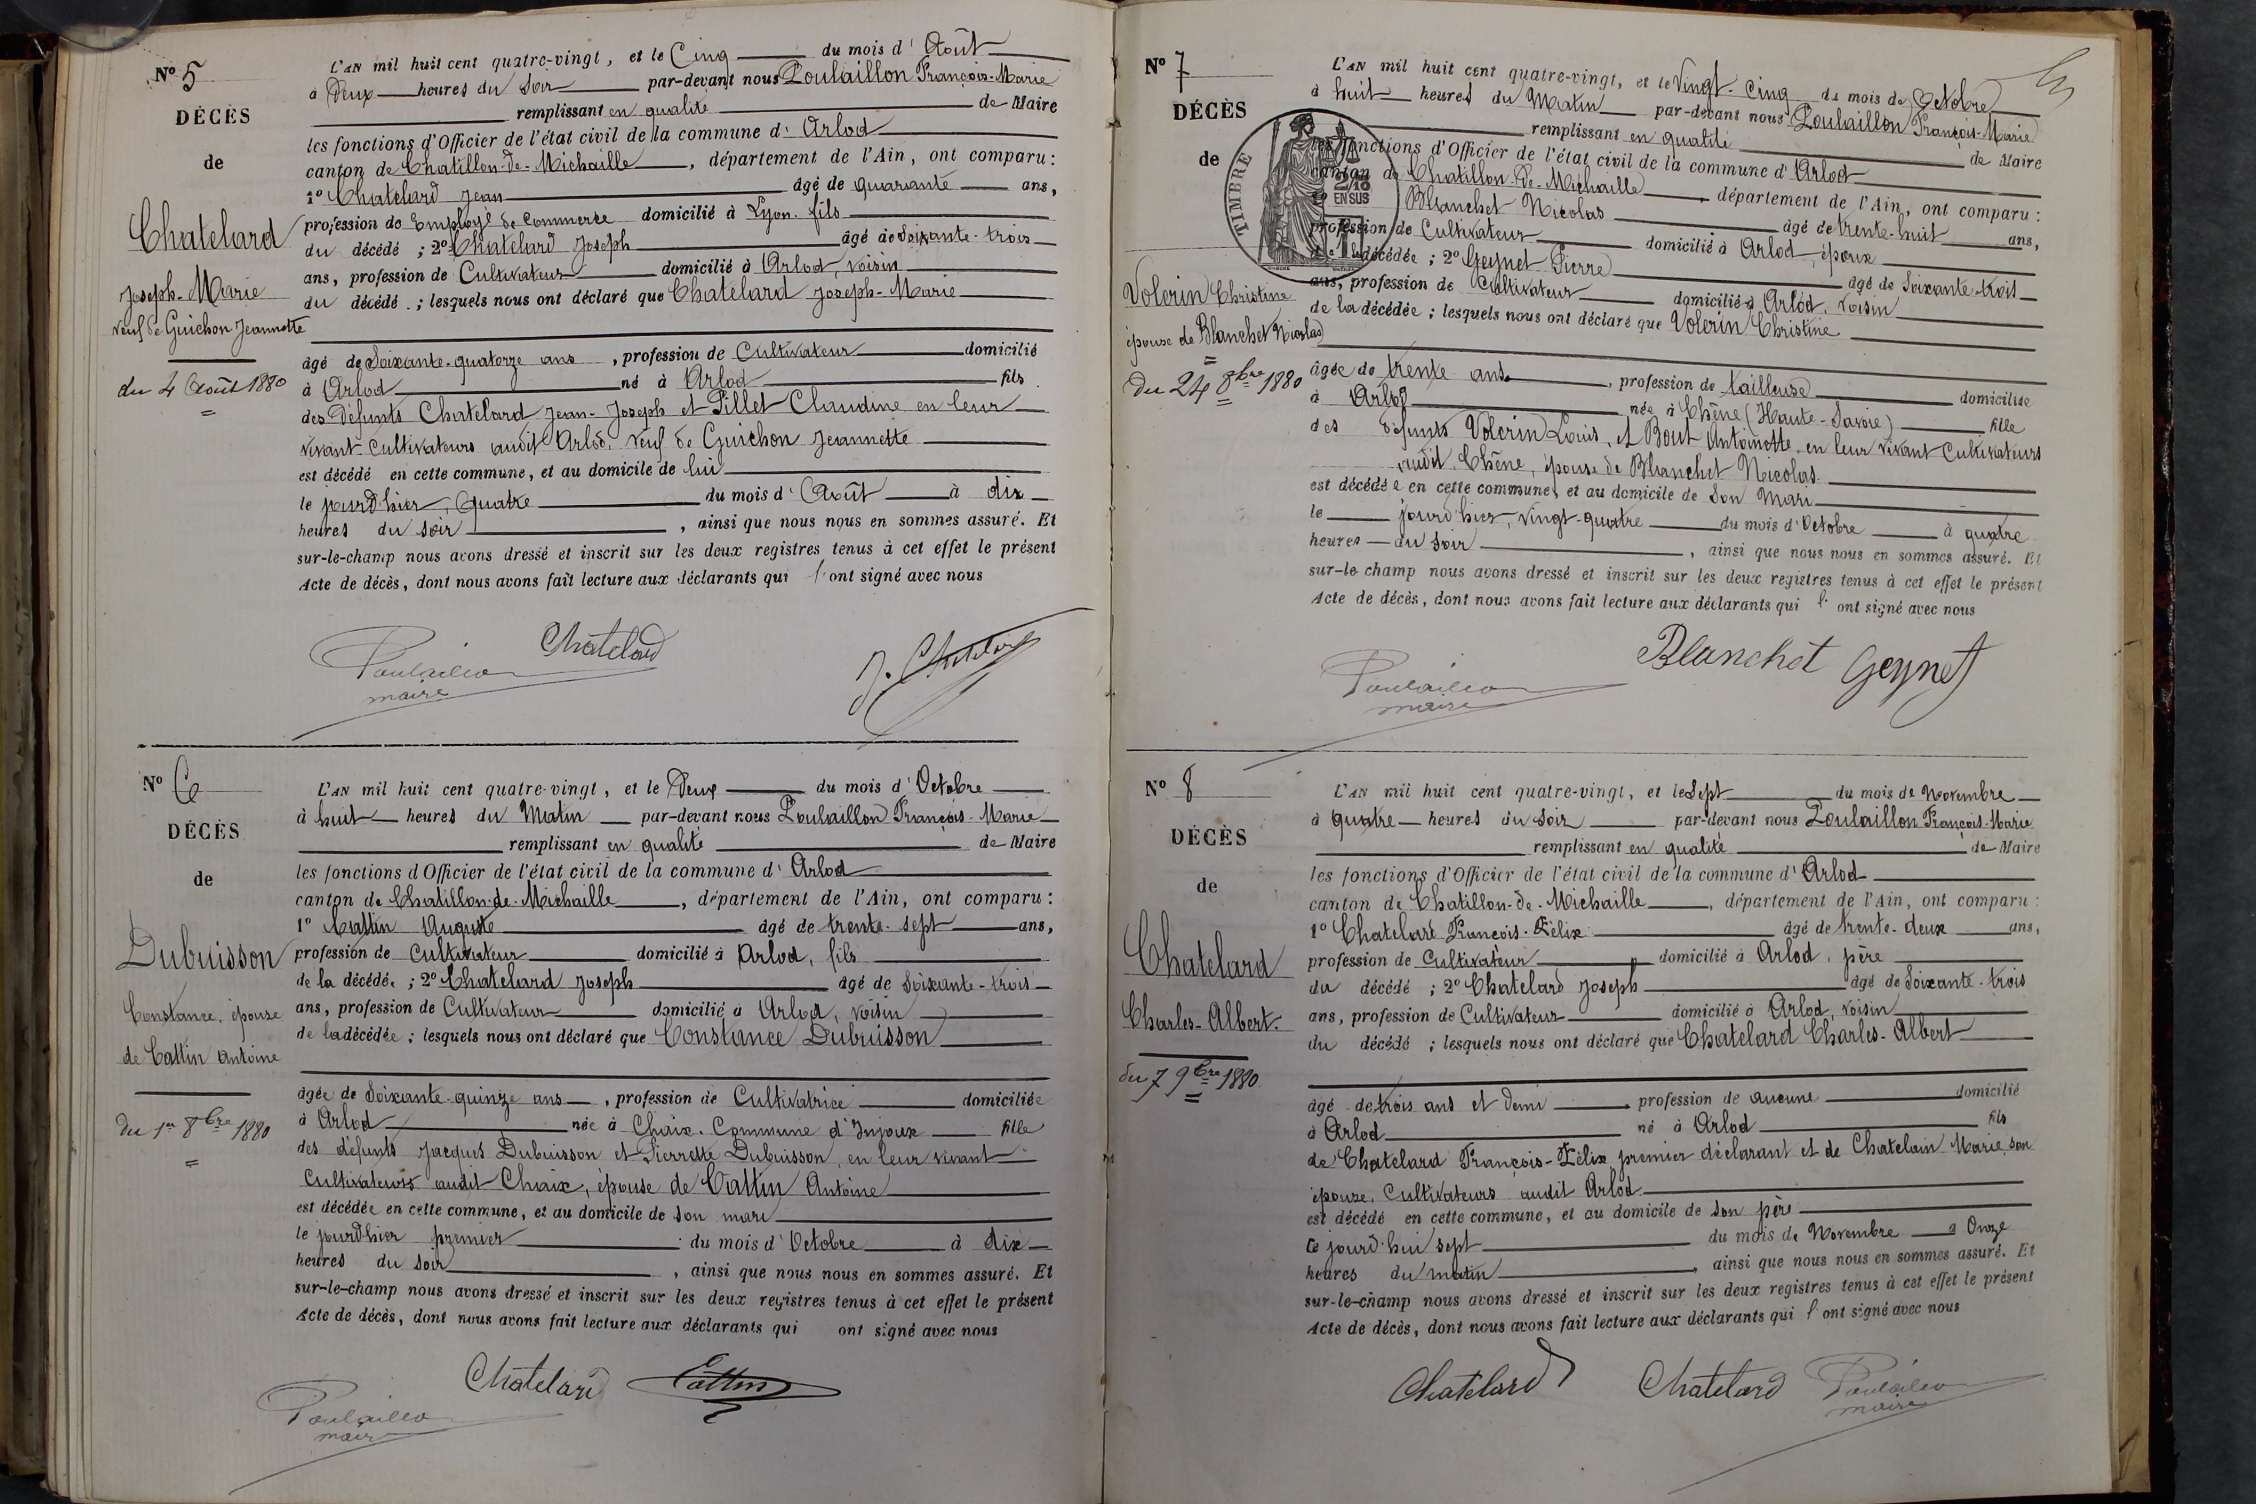 Nº 5
DÉCÈS
de
Chatelard
Joseph-Marie
veuf de Guichon Jeannette
du 4 Août 1880
L'AN mil huit cent quatre-vingt, et le Cinq du mois d' Août
à Deux heures du Soir par-devant nous Poulaillon François-Marie
remplissant en qualité de Maire
les fonctions d'Officier de l'état civil de la commune d' Arlod
canton de Chatillon-de-Michaille, département de l'Ain, ont comparu :
1º Chatelard Jean âgé de quarante ans,
profession de Employé de Commerce domicilié à Lyon. fils
du décédé ; 2º Chatelard Joseph âgé de Soixante-trois
ans, profession de Cultivateur domicilié à Arlod, voisin
du décédé ; lesquels nous ont déclaré que Chatelard Joseph-Marie
âgé de Soixante-quatorze ans, profession de Cultivateur domicilié
à Arlod né à Arlod fils
des défunts Chatelard Jean-Joseph et Pillet Claudine en leur
vivant cultivateurs audit Arlod. veuf de Guichon Jeannette
est décédé en cette commune, et au domicile de lui
le jourd'hier, quatre du mois d' Août à dix
heures du soir, ainsi que nous nous en sommes assuré. Et
sur-le-champ nous avons dressé et inscrit sur les deux registres tenus à cet effet le présent
Acte de décès, dont nous avons fait lecture aux déclarants qui l'ont signé avec nous
Chatelard
Poulaillon
maire
J. Chatelard
Nº 6
DÉCÈS
de
Dubuisson
Constance, épouse
de Cattin Antoine
du 1er 8bre 1880
L'AN mil huit cent quatre-vingt, et le Deux du mois d' Octobre
à huit heures du Matin par-devant nous Poulaillon François-Marie
remplissant en qualité de Maire
les fonctions d'Officier de l'état civil de la commune d' Arlod
canton de Chatillon-de-Michaille, département de l'Ain, ont comparu :
1º Cattin Auguste âgé de trente-sept ans,
profession de Cultivateur domicilié à Arlod, fils
de la décédée ; 2º Chatelard Joseph âgé de Soixante-trois
ans, profession de Cultivateur domicilié à Arlod, voisin
de la décédée ; lesquels nous ont déclaré que Constance Dubuisson
âgée de Soixante-quinze ans, profession de Cultivatrice domiciliée
à Arlod née à Chaix. Commune d'Injoux fille
des défunts Jacques Dubuisson et Pierrette Dubuisson, en leur vivant
Cultivateurs audit Chaix, épouse de Cattin Antoine
est décédée en cette commune, et au domicile de son mari
le jourd'hier premier du mois d' Octobre à dix
heures du soir, ainsi que nous nous en sommes assuré. Et
sur-le-champ nous avons dressé et inscrit sur les deux registres tenus à cet effet le présent
Acte de décès, dont nous avons fait lecture aux déclarants qui ont signé avec nous
Chatelard Cattin
Poulaillon
maire
Nº 7
DÉCÈS
de
TIMBRE
2/10
EN SUS
Volerin Christine
épouse de Blanchet Nicolas
du 24 8bre 1880
L'AN mil huit cent quatre-vingt, et le Vingt-Cinq du mois de Octobre
à huit heures du Matin par-devant nous Poulaillon François-Marie
remplissant en qualité de Maire
les fonctions d'Officier de l'état civil de la commune d' Arlod
canton de Chatillon-de-Michaille, département de l'Ain, ont comparu :
1º Blanchet Nicolas âgé de trente-huit ans,
profession de Cultivateur domicilié à Arlod, époux
de la décédée ; 2º Geynet Pierre âgé de Soixante-trois
ans, profession de Cultivateur domicilié à Arlod, voisin
de la décédée ; lesquels nous ont déclaré que Volerin Christine
âgée de trente ans, profession de tailleuse domiciliée
à Arlod née à Chêne (Haute-Savoie) fille
des défunts Volerin Louis, et Bout Antoinette en leur vivant Cultivateurs
audit Chêne, épouse de Blanchet Nicolas.
est décédée en cette commune, et au domicile de Son Mari
le jourd'hier, vingt-quatre du mois d'Octobre à quatre
heures du soir, ainsi que nous nous en sommes assuré. Et
sur-le-champ nous avons dressé et inscrit sur les deux registres tenus à cet effet le présent
Acte de décès, dont nous avons fait lecture aux déclarants qui l'ont signé avec nous
Blanchet Geynet
Poulaillon
maire
Nº 8
DÉCÈS
de
Chatelard
Charles-Albert.
du 7 9bre 1880
L'AN mil huit cent quatre-vingt, et le Sept du mois de Novembre
à quatre heures du soir par-devant nous Poulaillon François-Marie
remplissant en qualité de Maire
les fonctions d'Officier de l'état civil de la commune d' Arlod
canton de Chatillon-de-Michaille, département de l'Ain, ont comparu :
1º Chatelard François-Félix âgé de trente-deux ans,
profession de Cultivateur domicilié à Arlod, père
du décédé ; 2º Chatelard Joseph âgé de Soixante-trois
ans, profession de Cultivateur domicilié à Arlod, voisin
du décédé ; lesquels nous ont déclaré que Chatelard Charles-Albert
âgé de trois ans et demi, profession de aucune domicilié
à Arlod né à Arlod fils
de Chatelard François-Félix premier déclarant et de Chatelain Marie son
épouse, Cultivateurs audit Arlod
est décédé en cette commune, et au domicile de son père
le jourd'hui sept du mois de Novembre à Onze
heures du matin, ainsi que nous nous en sommes assuré. Et
sur-le-champ nous avons dressé et inscrit sur les deux registres tenus à cet effet le présent
Acte de décès, dont nous avons fait lecture aux déclarants qui l'ont signé avec nous
Chatelard Chatelard Poulaillon
maire